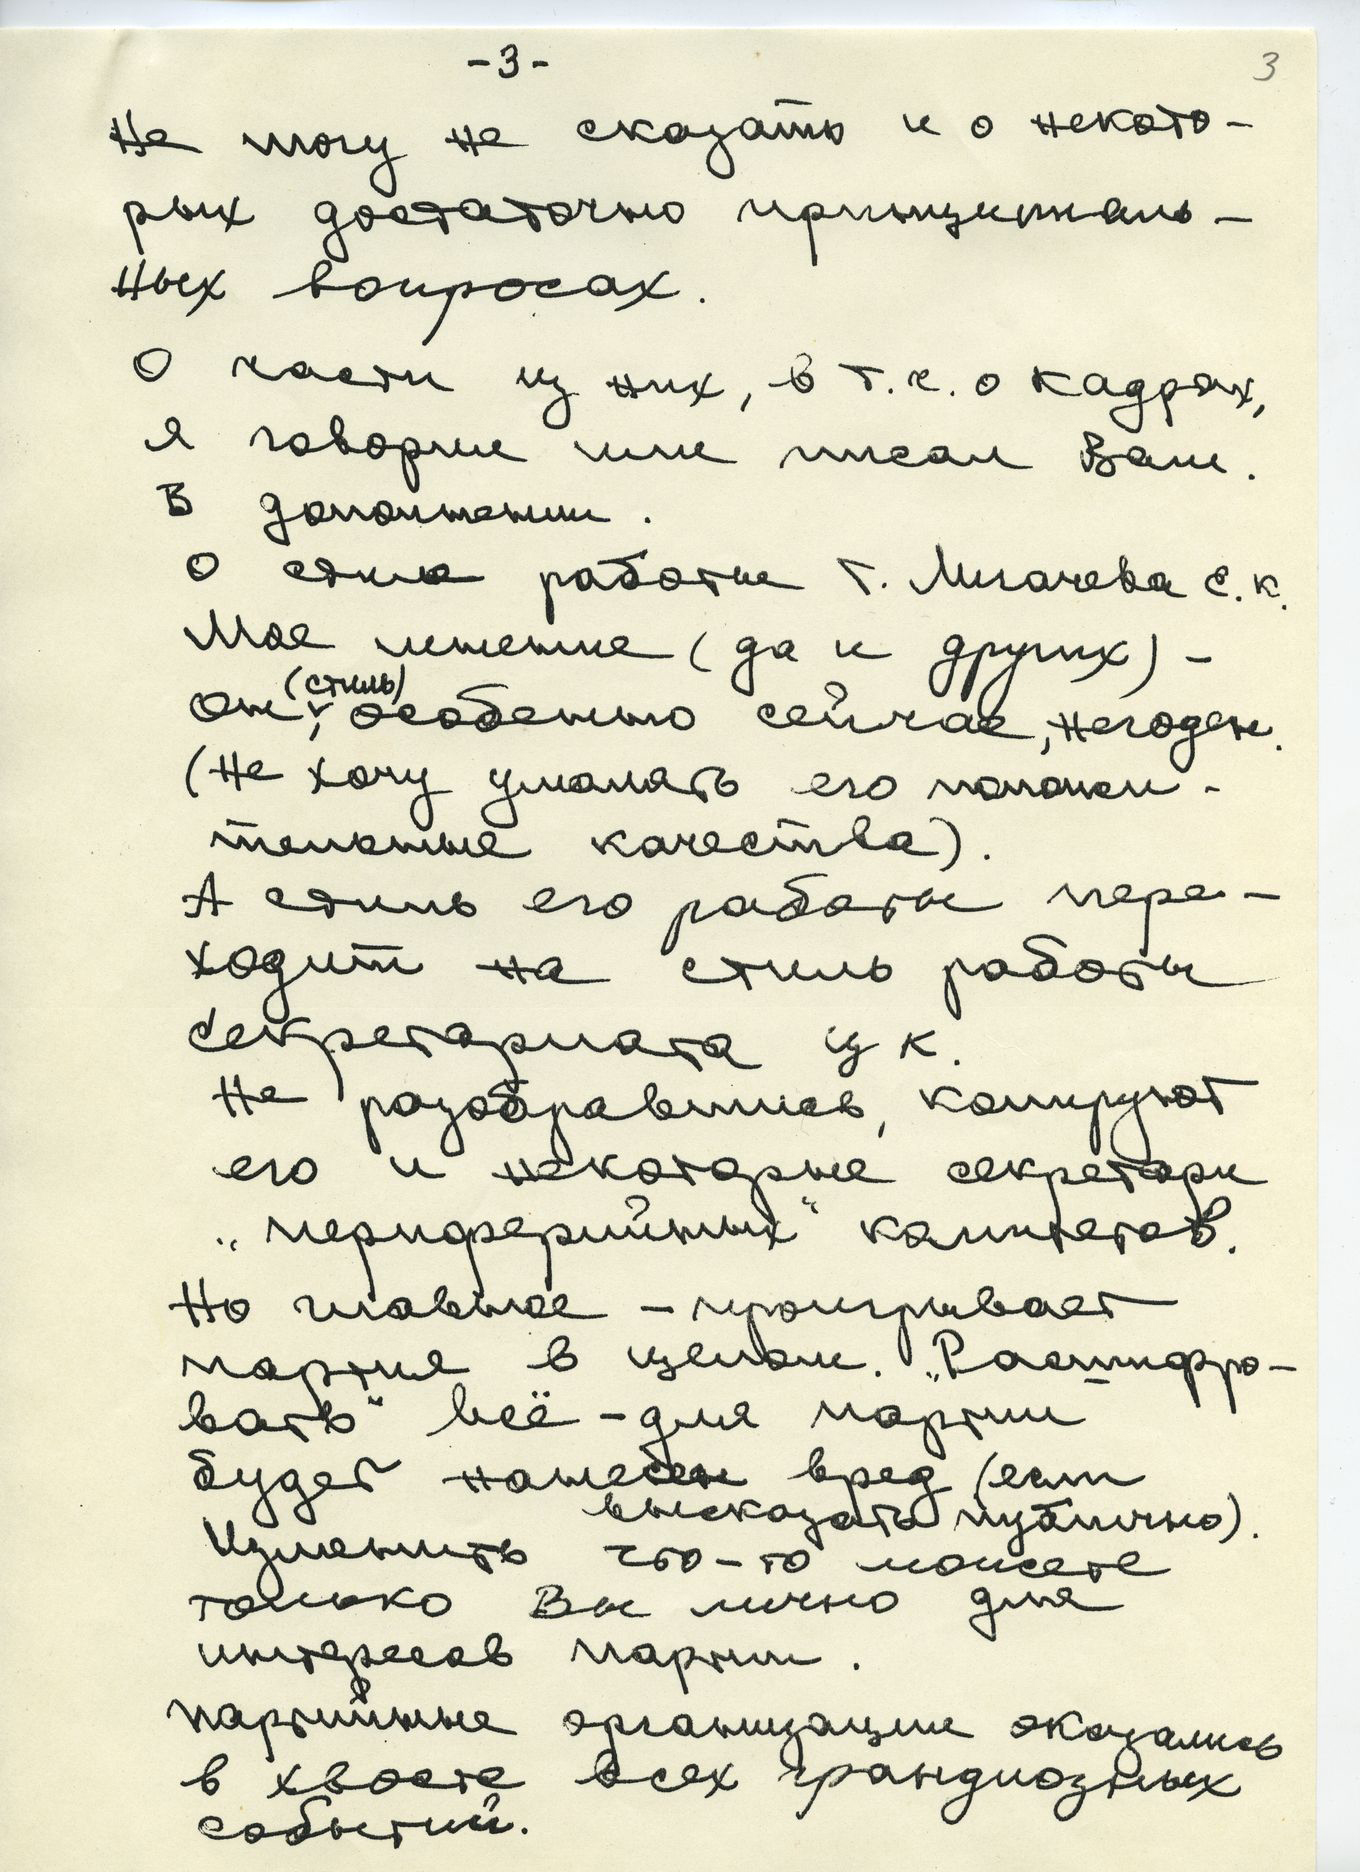 -3-
3
Не могу не сказать и о некото-
рых достаточно принципиаль-
ных вопросах.
О части из них, в т.ч. о кадрах,
я говорил или писал Вам.
В дополнении.
О стиле работы т. Лигачева Е.К.
Мое мнение (да и других) -
(стиль)
он, особенно сейчас, негоден.
(Не хочу умолять его положи-
тельные качества).
А стиль его работы пере-
ходит на стиль работы
Секретариата ЦК.
Не разобравшись, копируют
его и некоторые секретари
„периферийных“ комитетов.
Но главное - проигрывает
партия в целом. „Расшифро-
вать“ всё - для партии
будет нанесен вред (если
высказать публично).
Изменить что-то можете
только Вы лично для
интересов партии.
Партийные организации оказались
в хвосте всех грандиозных
событий.